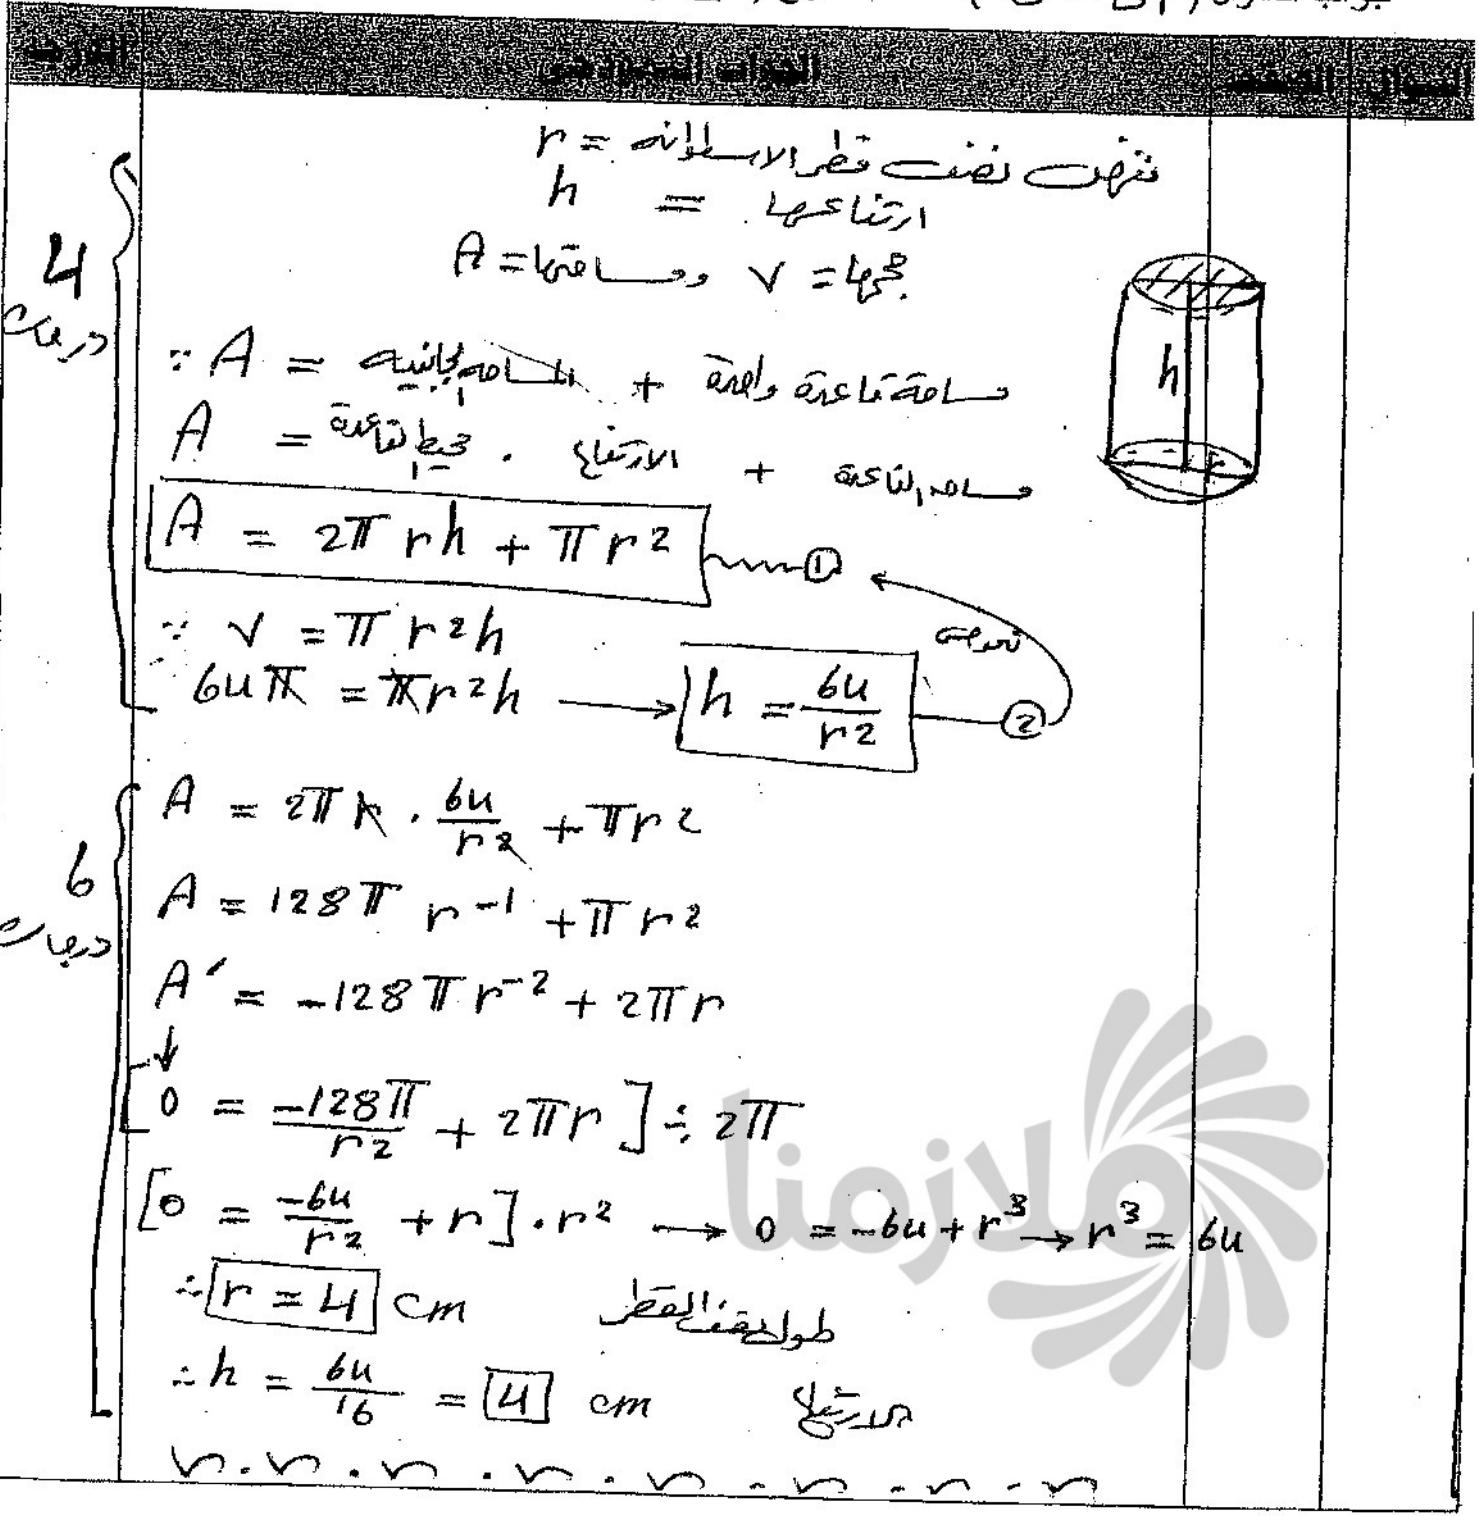 الدرجة الجواب النموذجي الصفحة السؤال
نفرض نصف قطر الاسطوانه = r
ارتفاعها = h
حجمها = v ومساحتها = A
∵ A = المساحه الجانبيه + مساحة قاعدة واحدة
A = محيط القاعدة . الارتفاع + مساحه القاعدة
h
r
4 درجات
A = 2π rh + π r2 ①
∵ v = π r2h
نعوضه
64π = πr2h → h = 64/r2 ②
A = 2π r . 64/r2 + πr2
6 درجات
A = 128π r-1 + π r2
A′ = -128π r-2 + 2π r
↓
[0 = -128π/r2 + 2πr] ÷ 2π
[0 = -64/r2 + r] . r2 → 0 = -64 + r3 → r3 = 64
∴ r = 4 cm طول نصف القطر
∴ h = 64/16 = 4 cm الارتفاع
ملازمنا